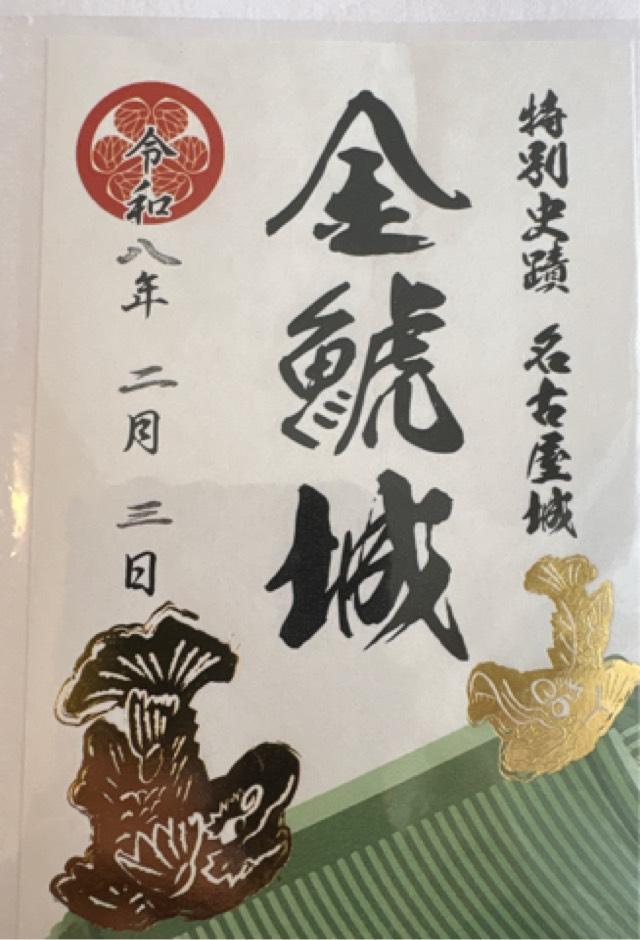 特別史蹟 名古屋城
金鯱城
令和八年 二月 三日